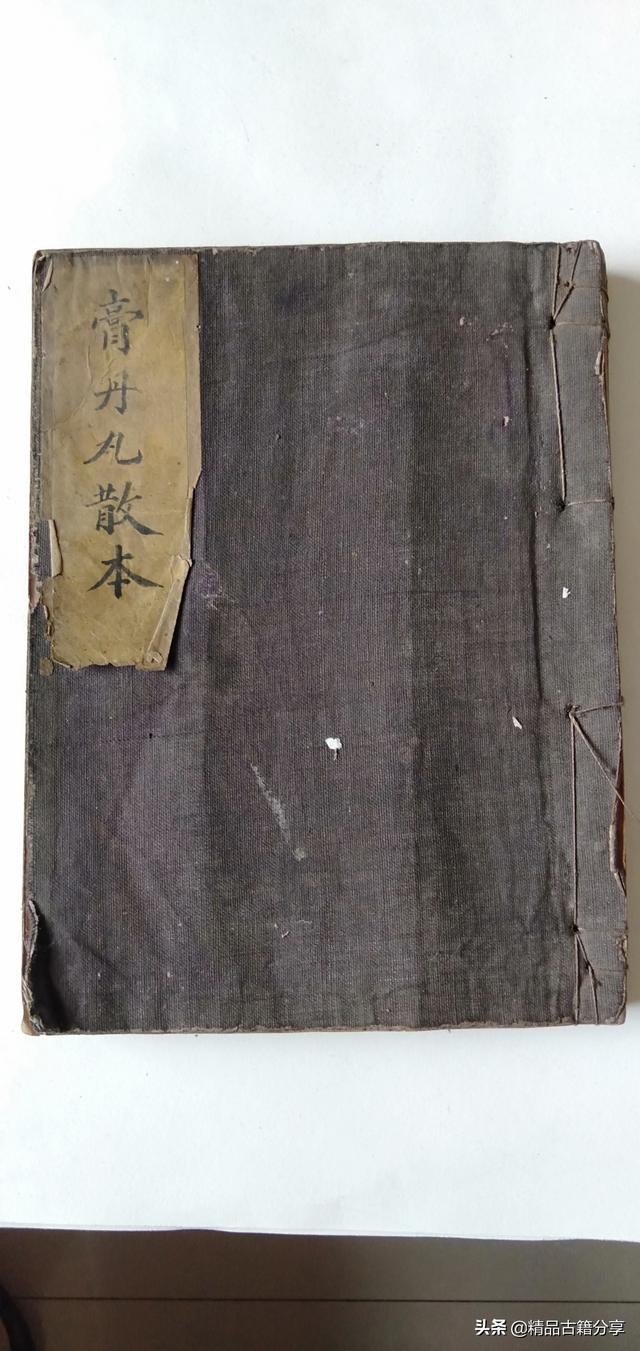 膏丹丸散本
头条 @精品古籍分享